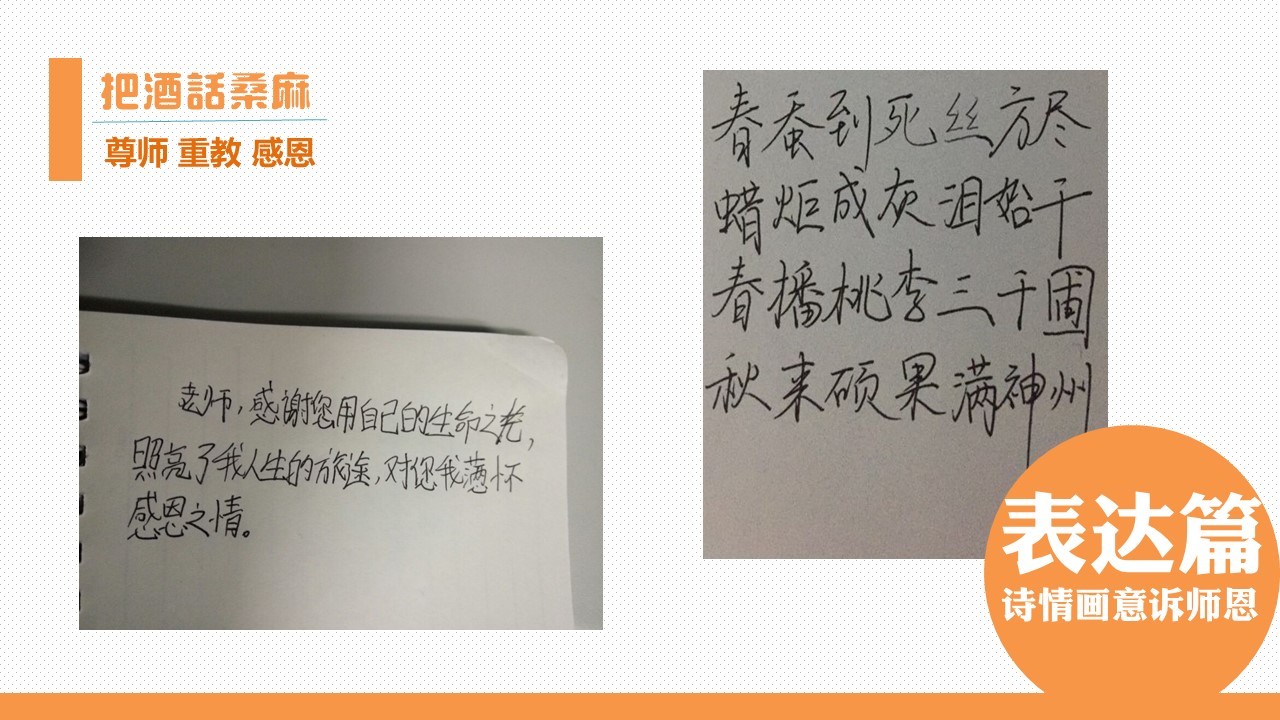 把酒話桑麻
尊师 重教 感恩
老师，感谢您用自己的生命之光，
照亮了我人生的旅途，对您我满怀
感恩之情。
春蚕到死丝方尽
蜡炬成灰泪始干
春播桃李三千圃
秋来硕果满神州
表达篇
诗情画意诉师恩